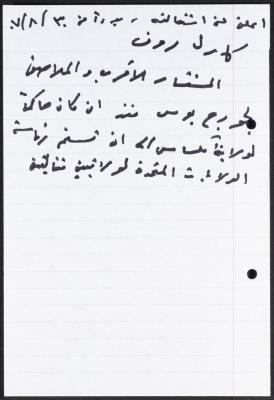 اعلن عن استقالته يوم ٣٠/٨/٠٧
كارل روف
المستشار الأقرب والملاصق
لجورج بوش منذ ان كان حاكماً
لولاية تكساس الى ان تسنم رئاسة
الولايات المتحدة لولايتين متتاليتين